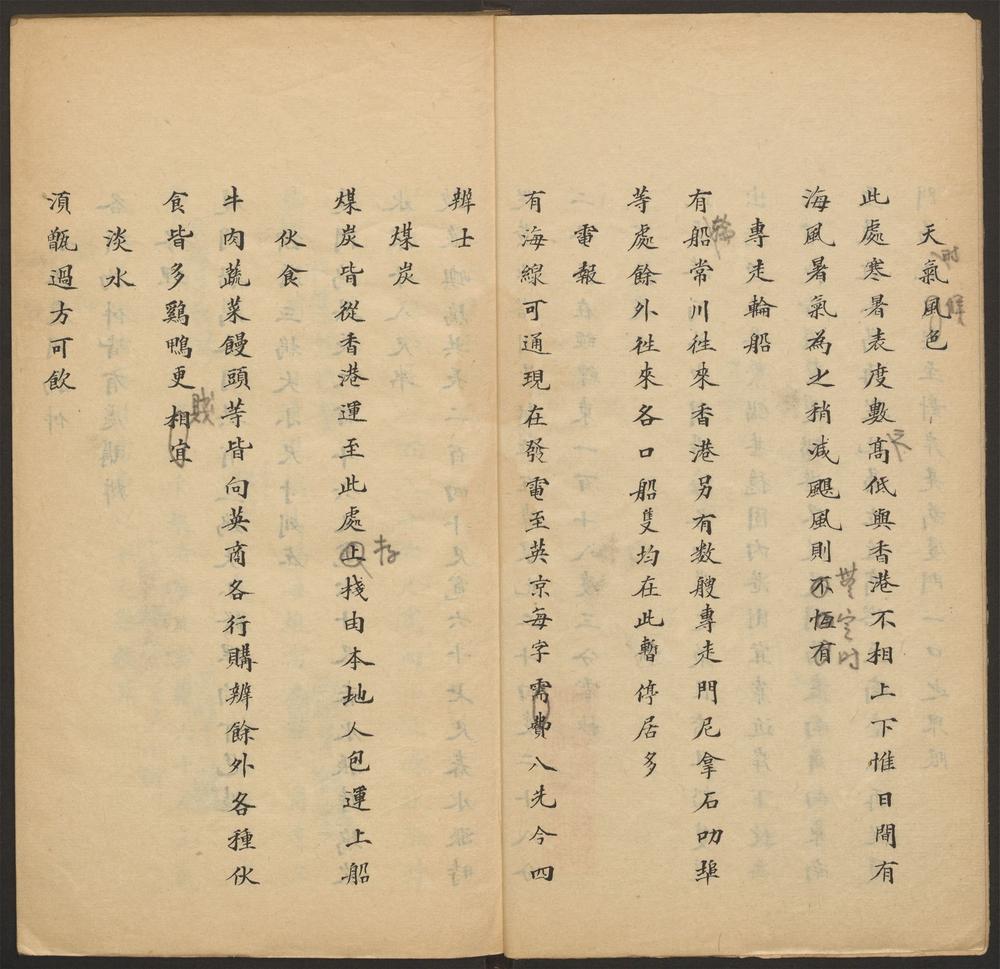 天氣風色
此處寒暑表度數高低與香港不相上下惟日間有
海風暑氣為之稍減颶風則不恆有
無定时
專走輪船
有船常川往來香港另有数艘專走門尼拿石叻埠
等處餘外往來各口船隻均在此暫停居多
電報
有海線可通現在發電至英京每字需費八先令四
辦士
煤炭
煤炭皆從香港運至此處上棧由本地人包運上船
存
伙食
牛肉蔬菜饅頭等皆向英商各行購辦餘外各種伙
食皆多鷄鴨更相宜
賤
淡水
湏甑過方可飲